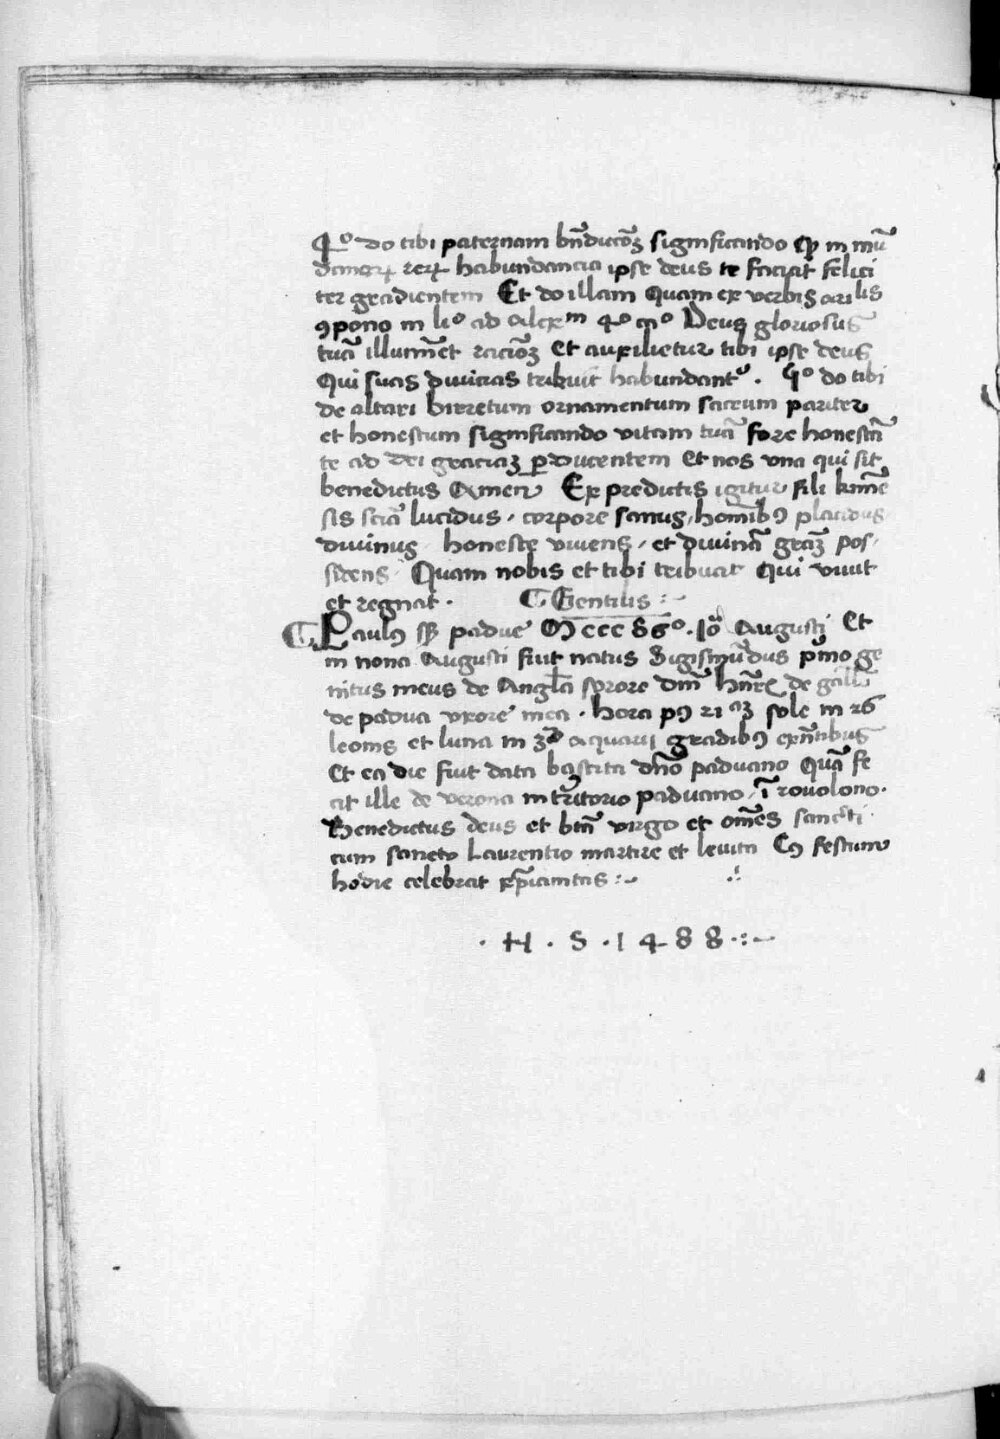 4º do tibi paternam bn̄dictōꝫ significando ꝙ in mū
danoꝝ reꝝ habundancia ipse deus te faciat felici
ter gradientem Et do illam Quam ex verbis
ꝯpono in liº ad 4º Deus gloriosus
tuā illumīet raciōꝫ et auxilietur tibi ipse deus
Qui suas divicias tribuit habundantʳ . do tibi
de altari birretum ornamentum sacrum pariter
et honestum significando vitam tuā fore honestā
te ad dei graciaꝫ ꝑducentem et nos una qui sit
benedictus Amen Ex predictis igitur fili
sis sciā lucidus · corpore sanus, homībꝰ placidus
divinus · honeste vivens, et divinā grāꝫ pos,
sidens · Quam nobis et tibi tribuat Qui vivit
et regnat · ¶ Gentilis :~
¶ Paulꝰ padue Mcccc86º · 10ª Augusti Et
in nona Augusti fuit natus Sigismūdus pͥmo ge
nitus meus de Angl̄a sorore dn̄i de
de padua uxore mea · hora pꝰ 21 sole in 26
leonis et luna in aquarij gradibꝰ exn̄tibus
Et ea die fuit data bastita dn̄o paduano Quā fe
cit ille de verona in tr̄itorio paduano, ī rovolono ·
Benedictus deus et btā virgo et om̄es sancti ·
cum sancto Laurentio martire et levita Cꝰ festum
hodie celebrat xp̄ianitas :~
· H · S · 1488 ·:~